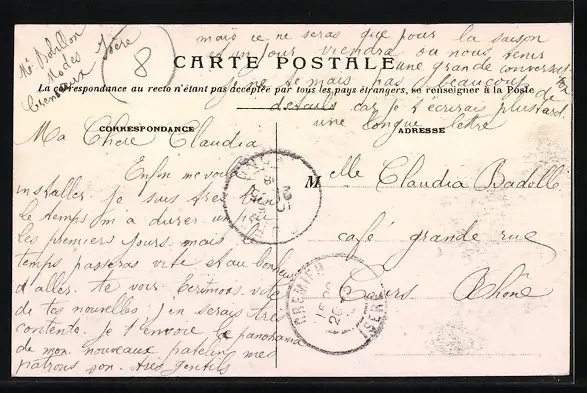 mais ce ne seras que pour la saison
et un jour viendra ou nous
une grande
CARTE POSTALE
je ne te mais pas beaucoup de
La correspondance au recto n'étant pas acceptée par tous les pays étrangers, se renseigner à la Poste
détails car je t'écrirai plus tard
une longue lettre
Modes
Cremieux Isère
8
CORRESPONDANCE
Ma Chère Claudia
Enfin me voila
installer. Je suis très bien
le temps m'a durer un peu
les premiers jours mais
temps passeras vite et au bonheur
d'aller te voir Ecrimoi vite
de tes nouvelles j'en serais très
contente. Je t'envoie le panorama
de mon nouveaux patelin mes
patrons son très gentils
ADRESSE
Melle Claudia Badolle
café grande rue
Cours Rhône
CREMIEU
ISERE